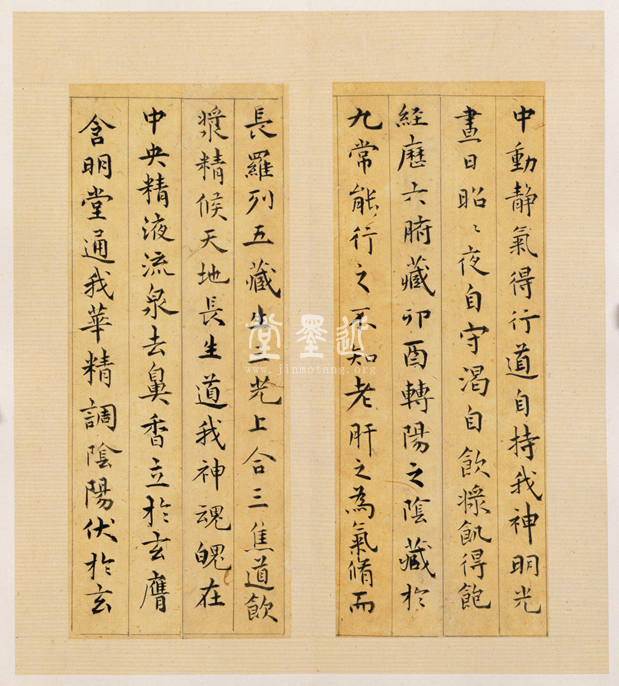 中動静氣得行道自持我神明光
晝日昭〻夜自守渴自飲漿飢得飽
経歷六腑藏卯酉轉陽之陰藏於
九常能行之不知老肝之為氣脩而
長羅列五藏生三光上合三焦道飲
漿精候天地長生道我神魂魄在
中央精液流泉去鼻香立於玄膺
含明堂通我華精調陰陽伏於玄
近墨堂
www.jinmotang.org